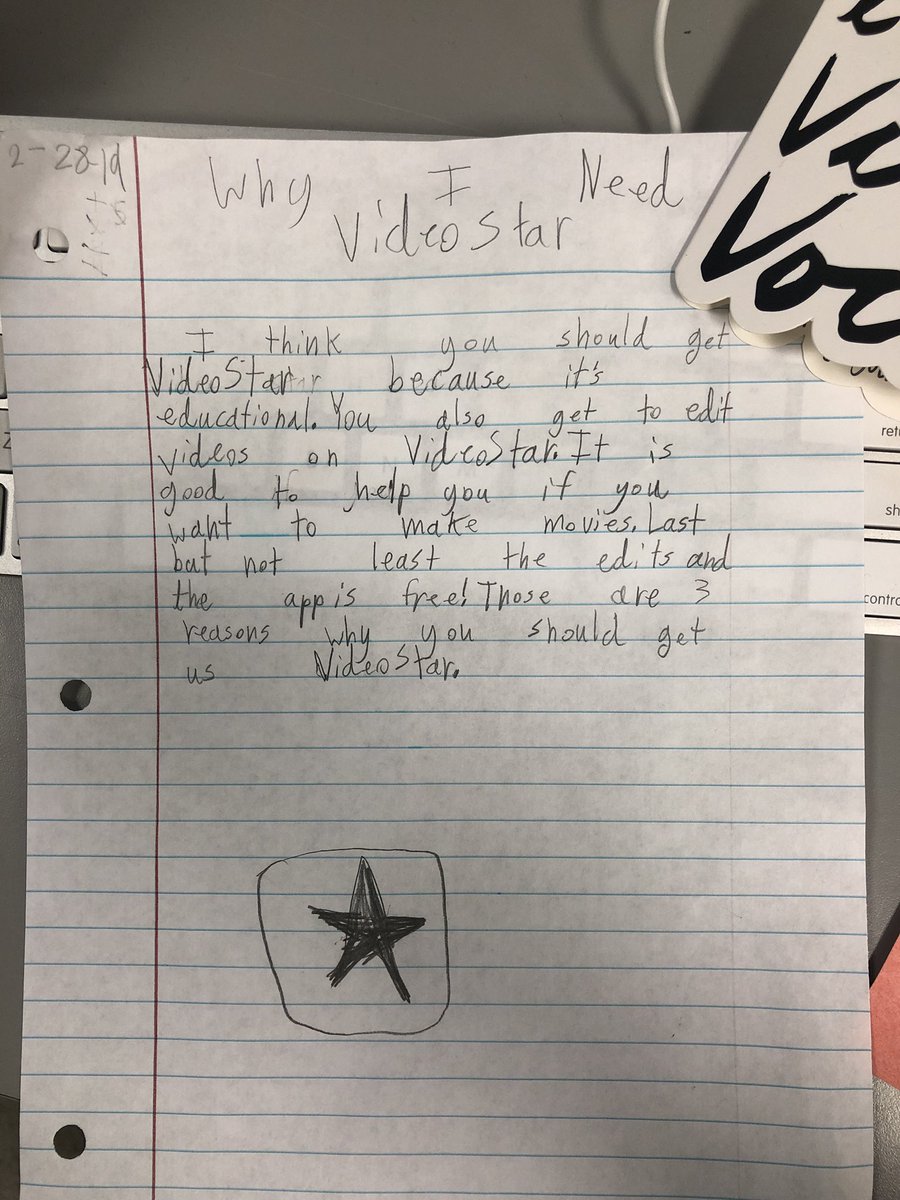 2-28-19
Why I Need
VideoStar
I think you should get
VideoStar because it's
educational. You also get to edit
videos on VideoStar. It is
good to help you if you
want to make movies. Last
but not least the edits and
the app is free! Those are 3
reasons why you should get
us VideoStar.
sh
contro